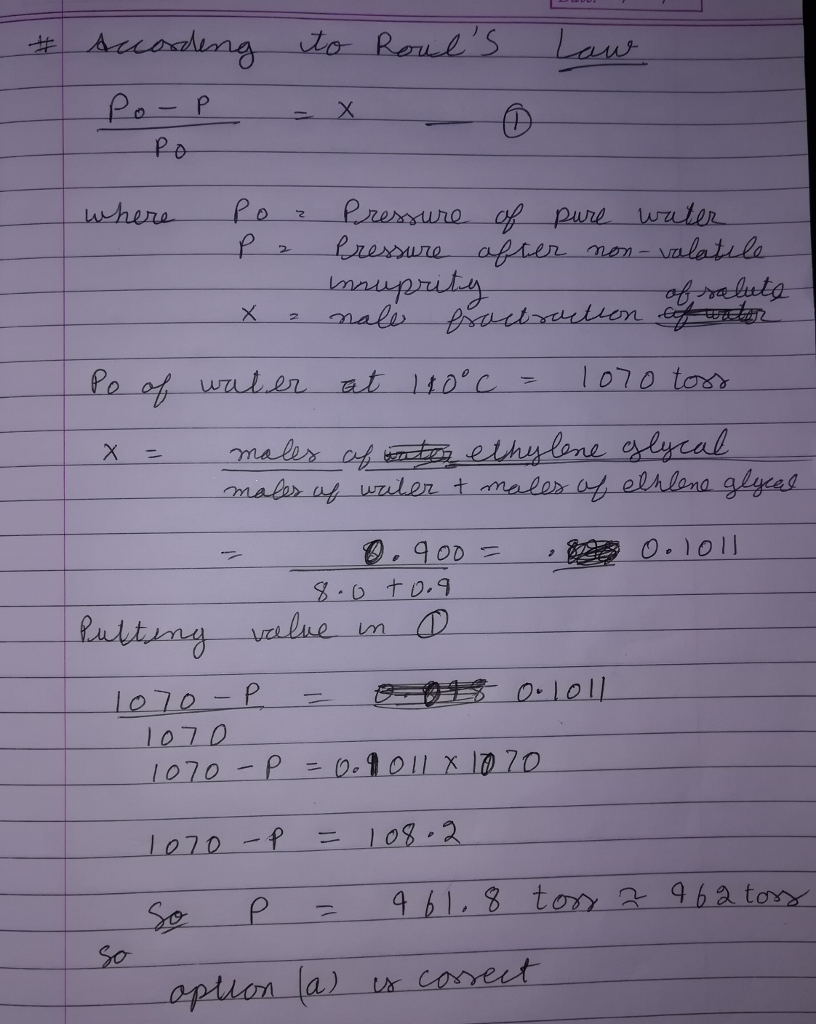 # Accordeng to Roul's Law
Po - P / Po = x — ①
where Po = Pressure of pure water
P = Pressure after non-valatile
innuprity
of salute
x = nale fractraction
Po of water at 110°C = 1070 torr
x = males of ethylene glycal / males of water + males of ehlene glycal
= 0.900 / 8.0 + 0.9 = 0.1011
Putteng value in ①
1070 - P / 1070 = 0.1011
1070 - P = 0.1011 x 1070
1070 - P = 108.2
So P = 961.8 torr ≈ 962 torr
so
option (a) is correct